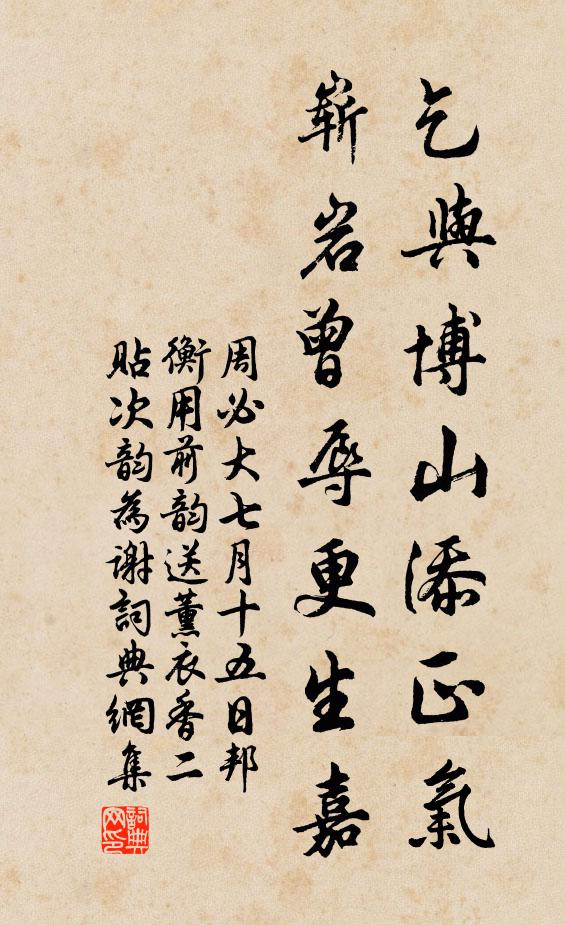 乞與博山添正氣
嶄岩曾辱更生嘉
周必大七月十五日邦
衡用前韵送薰衣香二
貼次韵為謝詞典網集
詞典網印